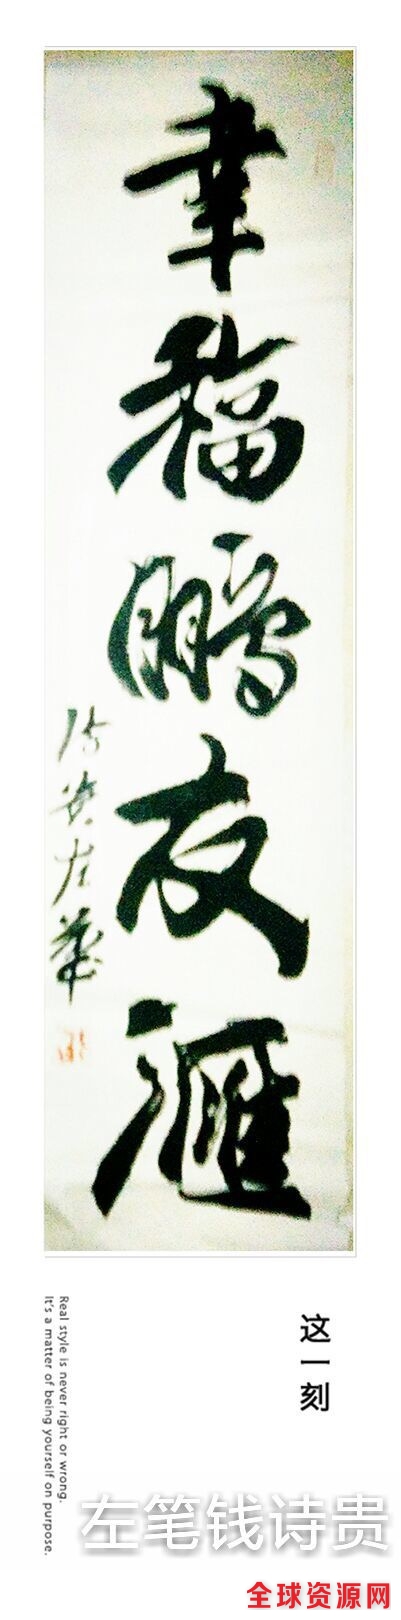 幸福鵬友滙
诗贵左筆
这一刻
Real style is never right or wrong.
It's a matter of being yourself on purpose.
左笔钱诗贵
全球资源网